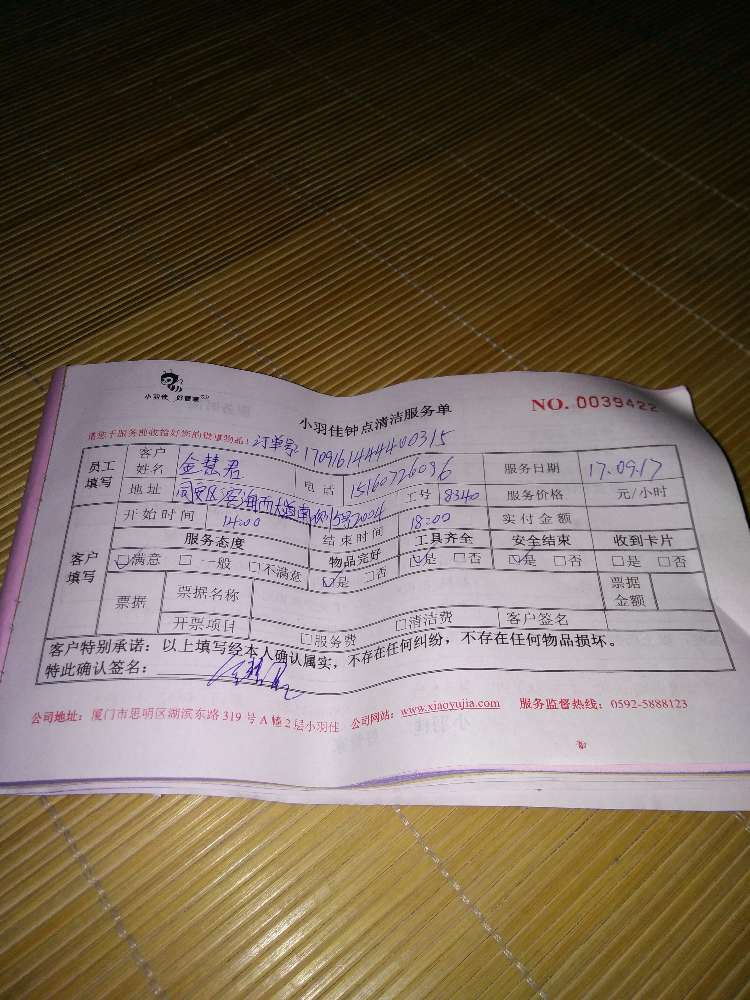 小羽佳 好管家
小羽佳钟点清洁服务单
NO. 0039422
订单号: 170916144400315
员工填写 客户姓名 金慧君 电话 15160726096 服务日期 17.09.17
地址 同安区 工号 8340 服务价格 元/小时
客户填写 开始时间 14:00 结束时间 18:00 实付金额
服务态度 物品完好 工具齐全 安全结束 收到卡片
☑满意 □一般 □不满意 ☑是 □否 ☑是 □否 ☑是 □否 □是 □否
票据 票据名称 票据金额
开票项目 □服务费 □清洁费 客户签名
客户特别承诺：以上填写经本人确认属实，不存在任何纠纷，不存在任何物品损坏。
特此确认签名：
公司地址：厦门市思明区湖滨东路319号A幢2层小羽佳 公司网站：www.xiaoyujia.com 服务监督热线：0592-5888123